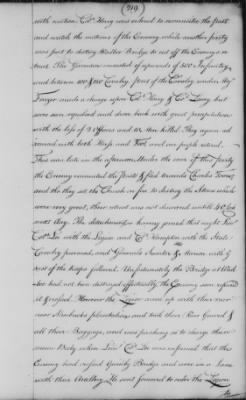 (219)
with section Colo. Henry was ordered to reconnoitre the front
and watch the motions of the Enemy while another party
was sent to destroy Wadboo Bridge to cut off the Enemys re-
treat. The Garrison consisted of upwards of 500 Infantry
and between 100 & 150 Cavalry. Part of the Cavalry under Maj
Frazer made a charge upon Colo. Henry & Colo. Lacey but
were soon repulsed and drove back with great precipitation
with the loss of 2 officers and 10 Men killed. They again ad-
vanced with both Horse and Foot, and our people retired.
This was late in the afternoon. Under the cover of their party
the Enemy commenced
and then they set the Church on fire to destroy the Stores which
were very great, their retreat was not discovered until 4 oClock
next day. The detachments having joined that night Lieut
Colo. Lee with the Legion and Co. Hampton with the State
Cavalry pursued, and Generals Sumter & Marion with the
rest of the troops followed. Unfortunately the Bridge at Wad-
boo had not been destroyed effectually the Enemy soon repaired
it & crossed. However the Legion came up with their rear
near plantations and took their Rear Guard &
all their Baggage, and was pushing on to charge their
main Body when Lieut. Colo. Lee was informed that the
Enemy had crossed Quinby Bridge and were in a Lane
with their Artillery. He sent forward to order the Legion
to